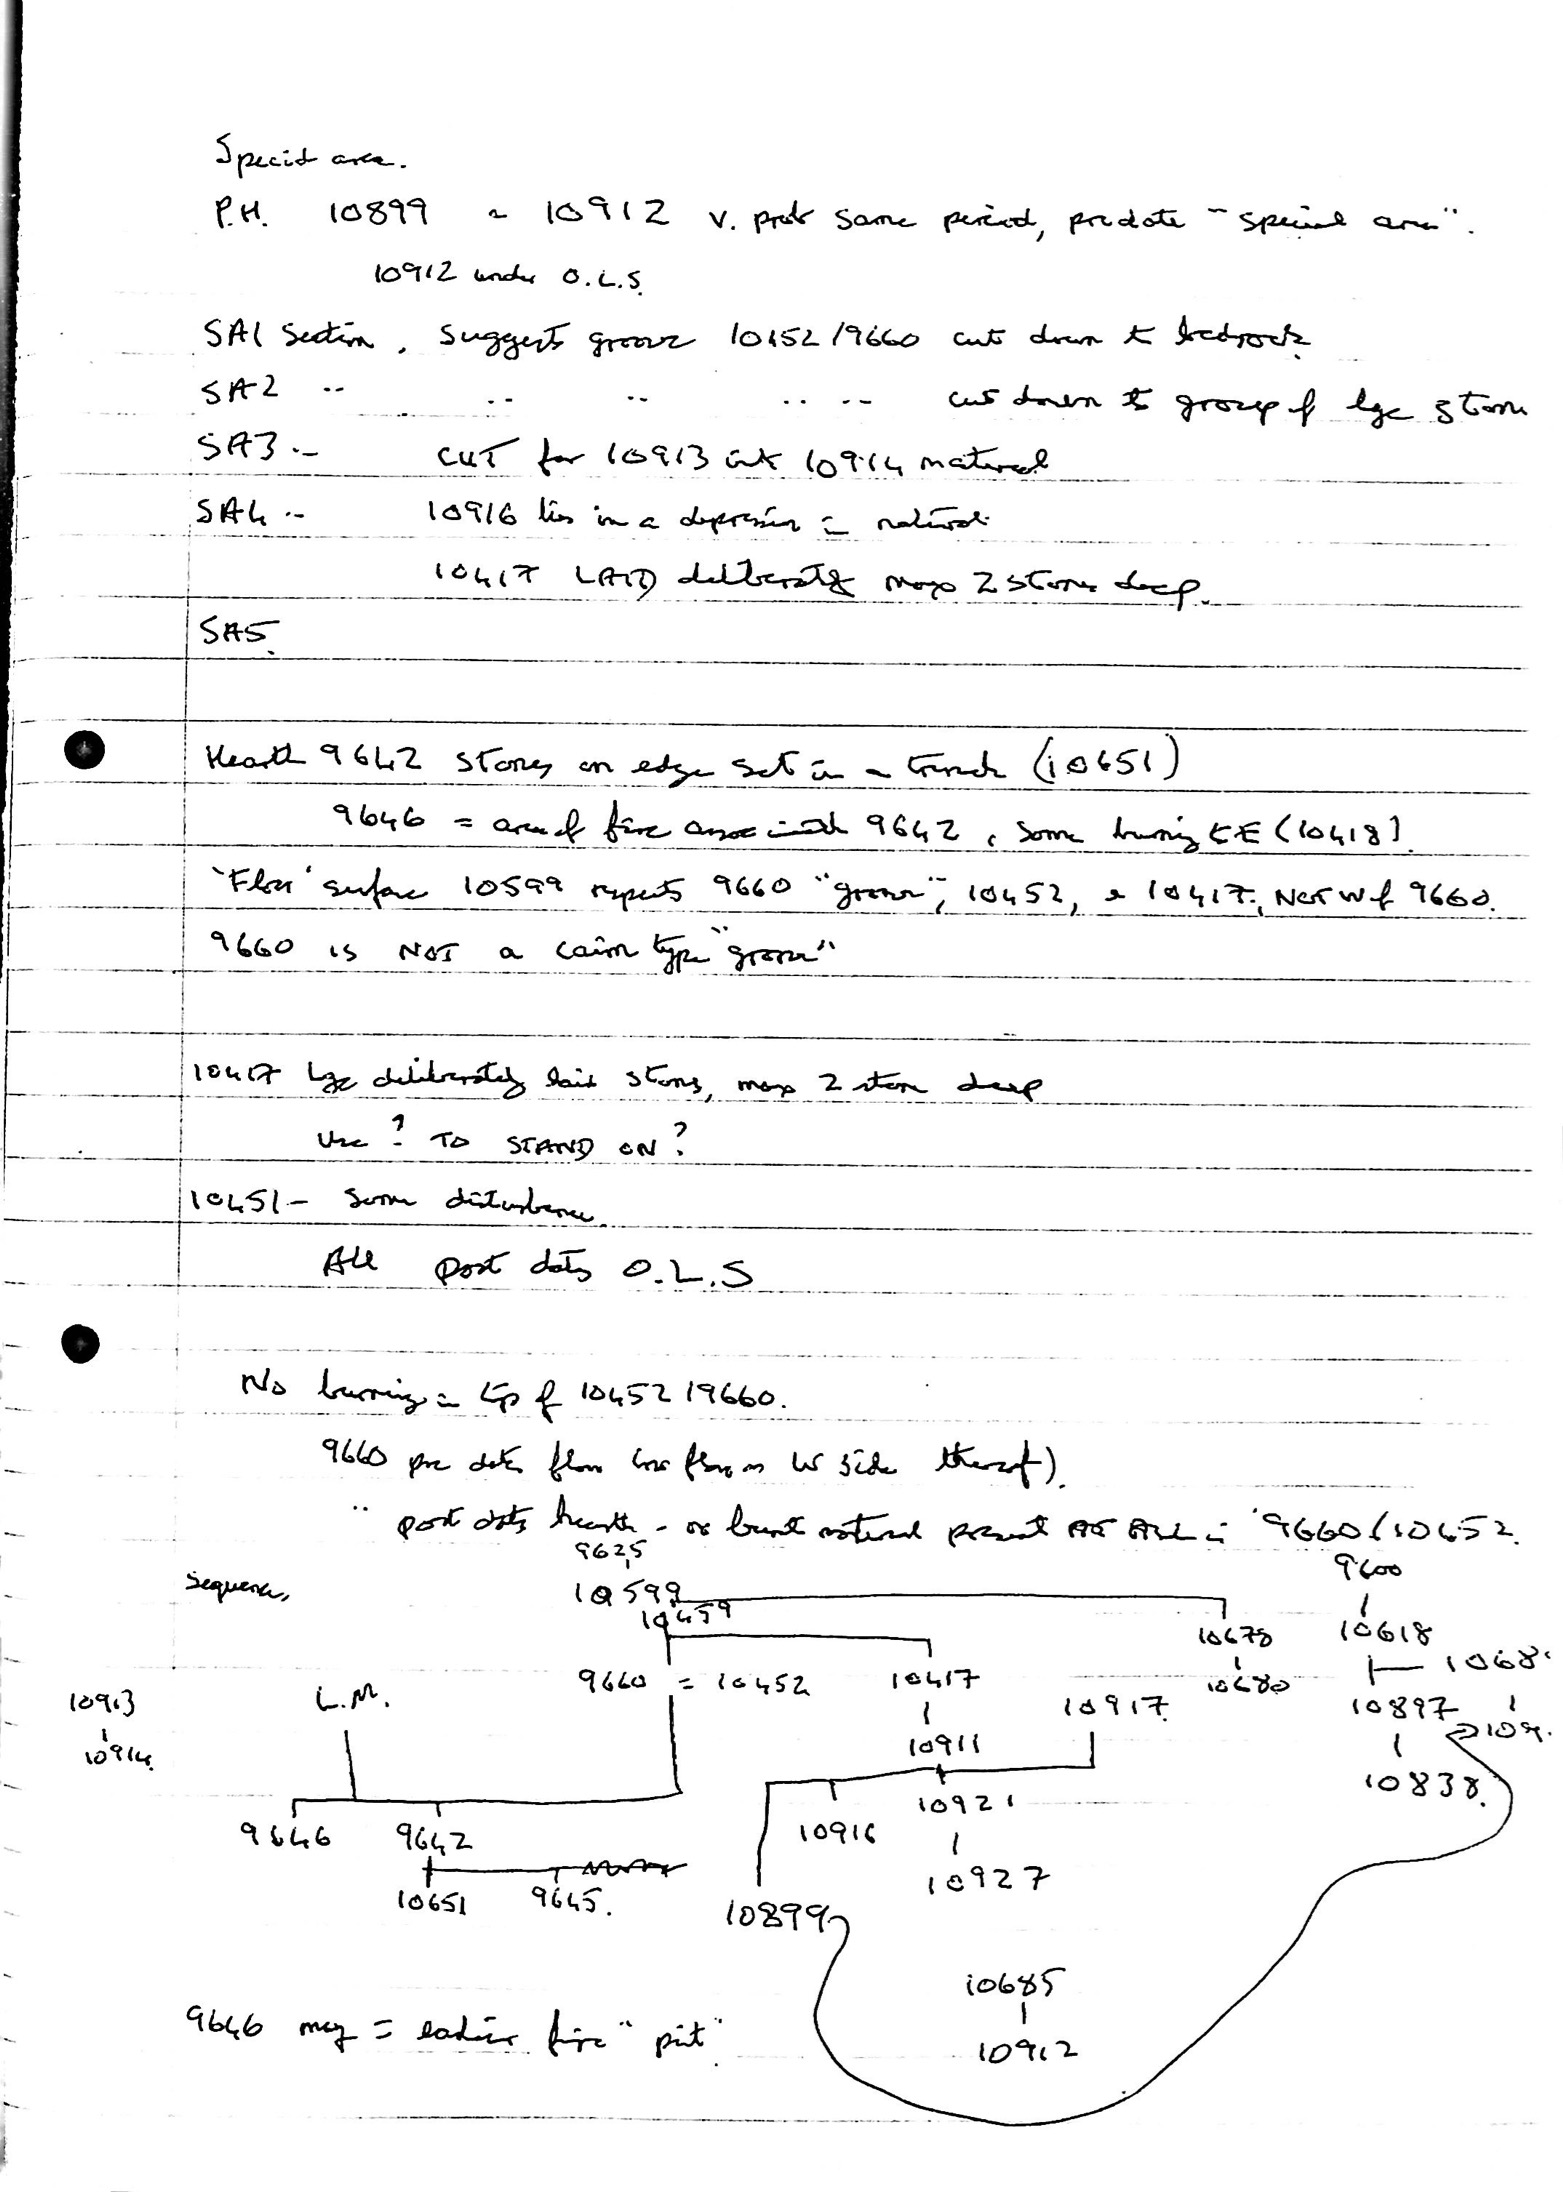 Special area.
P.H. 10899 ~ 10912 v. prob same period, predate "special area".
10912 under O.L.S.
SA1 Section. Suggests groove 10452/9660 cuts down to bedrock
SA2 .. .. .. .. .. cut down to group of lge stones
SA3 .. CUT for 10913 into 10914 material
SA4 .. 10916 lies in a depression in natural.
10417 LAID deliberately max 2 stones deep.
SA5.
Hearth 9642 stones on edge set in a trench (10651)
9646 = area of fire assoc with 9642, some burning (10418).
'Floor' surface 10599 respects 9660 "groove", 10452, & 10417, Not W of 9660.
9660 is NOT a cairn type "groove"
10417 lge deliberately laid stones, max 2 stone deep
Use? TO STAND ON?
10451 - some disturbance
All post dates O.L.S
No burning in top of 10452/9660.
9660 pre dates floor (no floor on W side thereof).
" post dates hearth - no burnt material present AT ALL in 9660/10452.
Sequence.
9625
10599
10459
9600
10678
10618
1068
9660 = 10452
10417
10680
10913
L.M.
10917
10897
109
10914
10911
10838.
9646
9642
10916
10921
10651
9645.
10927
10899
10685
9646 may = earlier fire "pit"
10912